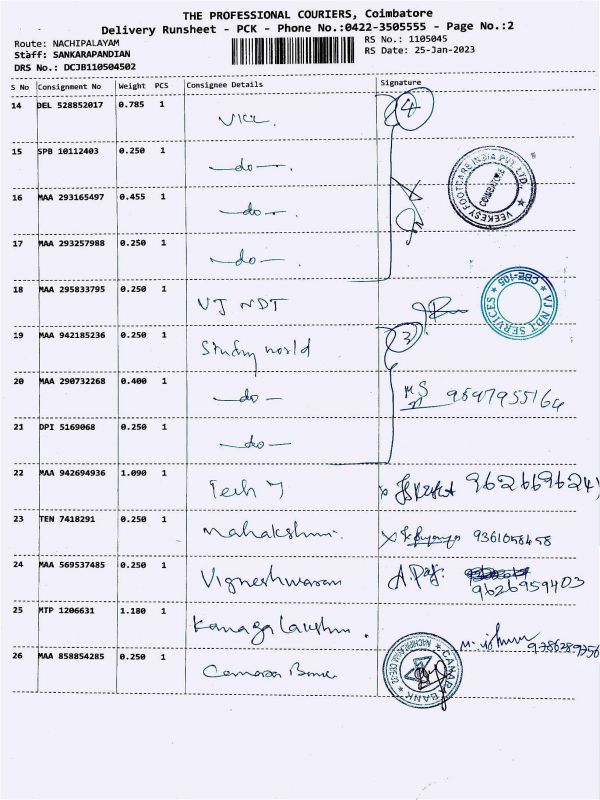 THE PROFESSIONAL COURIERS, Coimbatore
Delivery Runsheet - PCK - Phone No.:0422-3505555 - Page No.:2
Route: NACHIPALAYAM
RS No.: 1105045
Staff: SANKARAPANDIAN
RS Date: 25-Jan-2023
DRS No.: DCJB110504502
S No Consignment No Weight PCS Consignee Details Signature
14 DEL 528852017 0.785 1 4
15 SPB 10112403 0.250 1 -do-.
VEEKESY FOOTCARE INDIA PVT. LTD.
COIMBATORE
16 MAA 293165497 0.455 1 -do-.
17 MAA 293257988 0.250 1 -do-.
18 MAA 295833795 0.250 1 VJ NDT
VJ NDT SERVICES * CBE-105 *
19 MAA 942185236 0.250 1 Study world 3
20 MAA 290732268 0.400 1 -do- 9597955164
21 DPI 5169068 0.250 1 -do-
22 MAA 942694936 1.090 1 Tech 7 962669624
23 TEN 7418291 0.250 1 Mahalakshmi. 9361058458
24 MAA 569537485 0.250 1 Vigneshwaran 9626959403
25 MTP 1206631 1.180 1 Kanagalakshmi.
26 MAA 858854285 0.250 1 Canara Bank
CANARA BANK